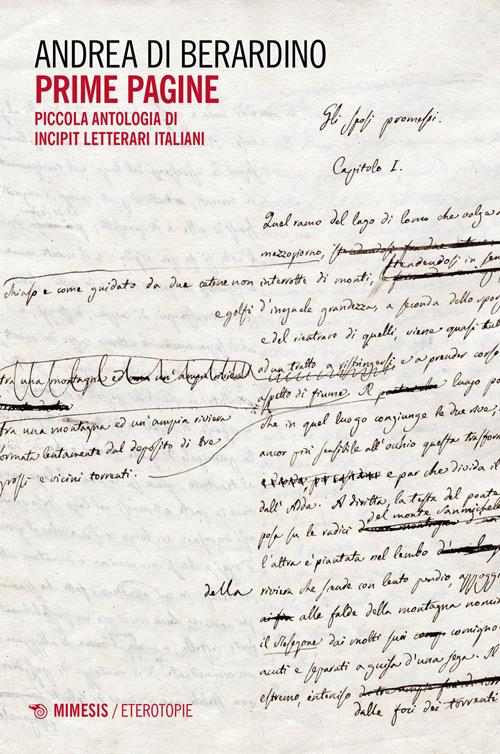 ANDREA DI BERARDINO
PRIME PAGINE
PICCOLA ANTOLOGIA DI
INCIPIT LETTERARI ITALIANI
Gli sposi promessi.
Capitolo I.
Quel ramo del lago di Como che volge a
mezzogiorno,
standendosi in
chiuso e come guidato da due catene non interrotte di monti,
e golfi d'ineguale grandezza, a seconda dello spor
e del rientrare di quelli, viene quasi tut
tra una montagna e un'ampia riviera
ad un tratto a ristringersi e a prender corso
aspetto di fiume. Il luogo
tra una montagna ed un'ampia riviera
che in quel luogo congiunge le due rive
formata lentamente dal deposito di tre
ancor più sensibile all'occhio questa trasform
grossi e vicini torrenti.
e par che divida il
dall'Adda. A diritta, la testa del ponte
del monte Sanmichele
posa su le radici
l'altra è piantata nel lembo
della riviera che scende con lento pendio
alle falde della montagna nomin
il Resegone dai molti suoi comigno
acuti e separati a guisa d'una sega. Il
estremo, interciso
dalle foci dei torrenti
MIMESIS / ETEROTOPIE